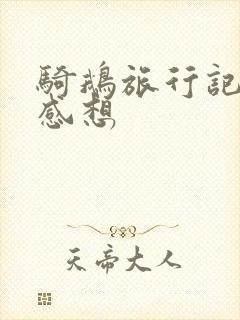 騎鵝旅行記
感想
天帝大人